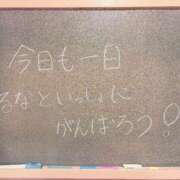 今日も一日
るなといっしょに
がんばろう!